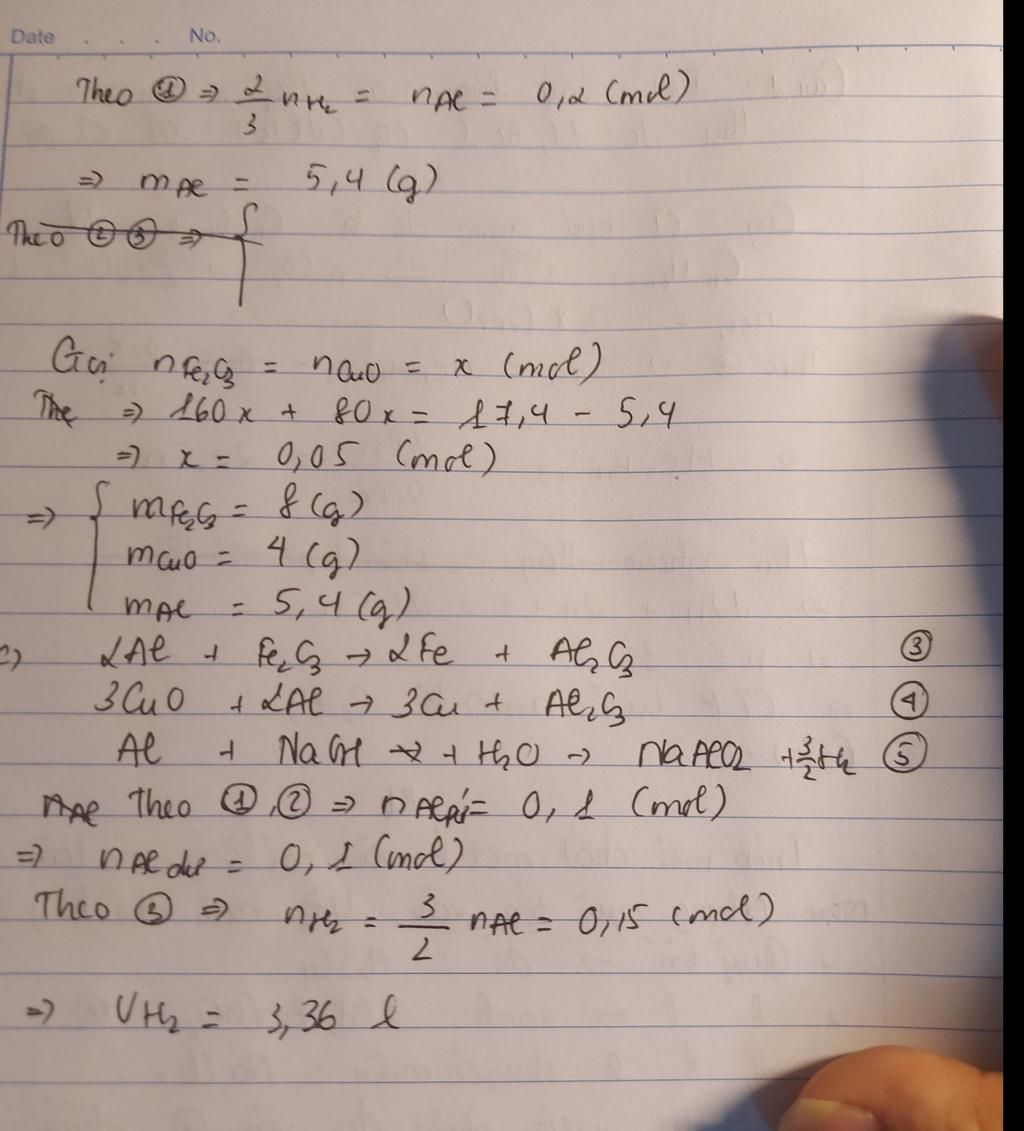 Date . . . No.
Theo ① ⇒ 2/3 nH₂ = nAl = 0,2 (mol)
⇒ mAl = 5,4 (g)
Theo ② ③ ⇒ {
Gọi nFe₂O₃ = nCuO = x (mol)
The ⇒ 160x + 80x = 17,4 - 5,4
⇒ x = 0,05 (mol)
⇒ { mFe₂O₃ = 8 (g)
mCuO = 4 (g)
mAl = 5,4 (g)
c) 2Al + Fe₂O₃ → 2Fe + Al₂O₃ ③
3CuO + 2Al → 3Cu + Al₂O₃ ④
Al + NaOH → + H₂O → NaAlO₂ + 3/2 H₂ ⑤
nAl Theo ①, ② ⇒ nAl pứ = 0,1 (mol)
⇒ nAl dư = 0,1 (mol)
Theo ③ ⇒ nH₂ = 3/2 nAl = 0,15 (mol)
⇒ VH₂ = 3,36 l